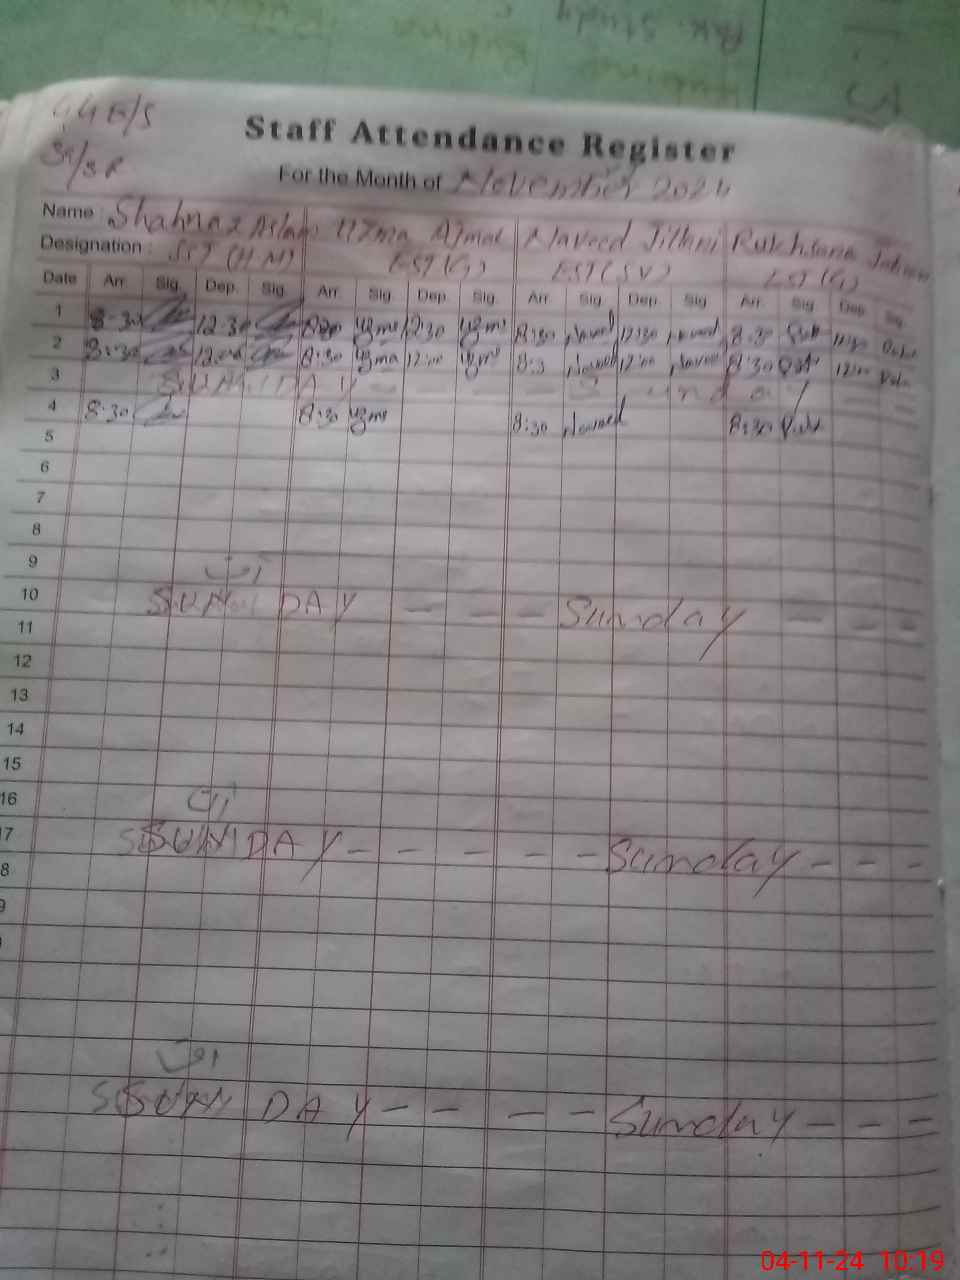 GGE/S
Staff Attendance Register
SR/SR
For the Month of November 2024
Name : Shahnaz Aslam Uzma Ajmal Naveed Jillani Rukhsana
Designation : SST (H M) EST (G) EST (SV) EST (G)
Date Arr. Sig. Dep. Sig. Arr. Sig. Dep. Sig. Arr. Sig. Dep. Sig. Arr. Sig. Dep. Sig.
1 8-30 12-30 uzma 12:30 uzma 8:30 Naveed 12:30 Naveed 8:30 Ruk
2 8:30 12:00 8:30 uzma 12:00 uzma 8:3 Naveed 12:00 Naveed 8:30 Ruk 12:00
3 SUN DAY - - - - Sunday - -
4 8:30 8:30 uzma 8:30 Naveed 8:30 Ruk
5
6
7
8
9
اتوار
10 SUN DAY - - - Sunday - - -
11
12
13
14
15
16
اتوار
7 SUN DAY - - - - - Sunday - - -
8
9
اتوار
SUN DAY - - - - Sunday - - -
04-11-24 10:19